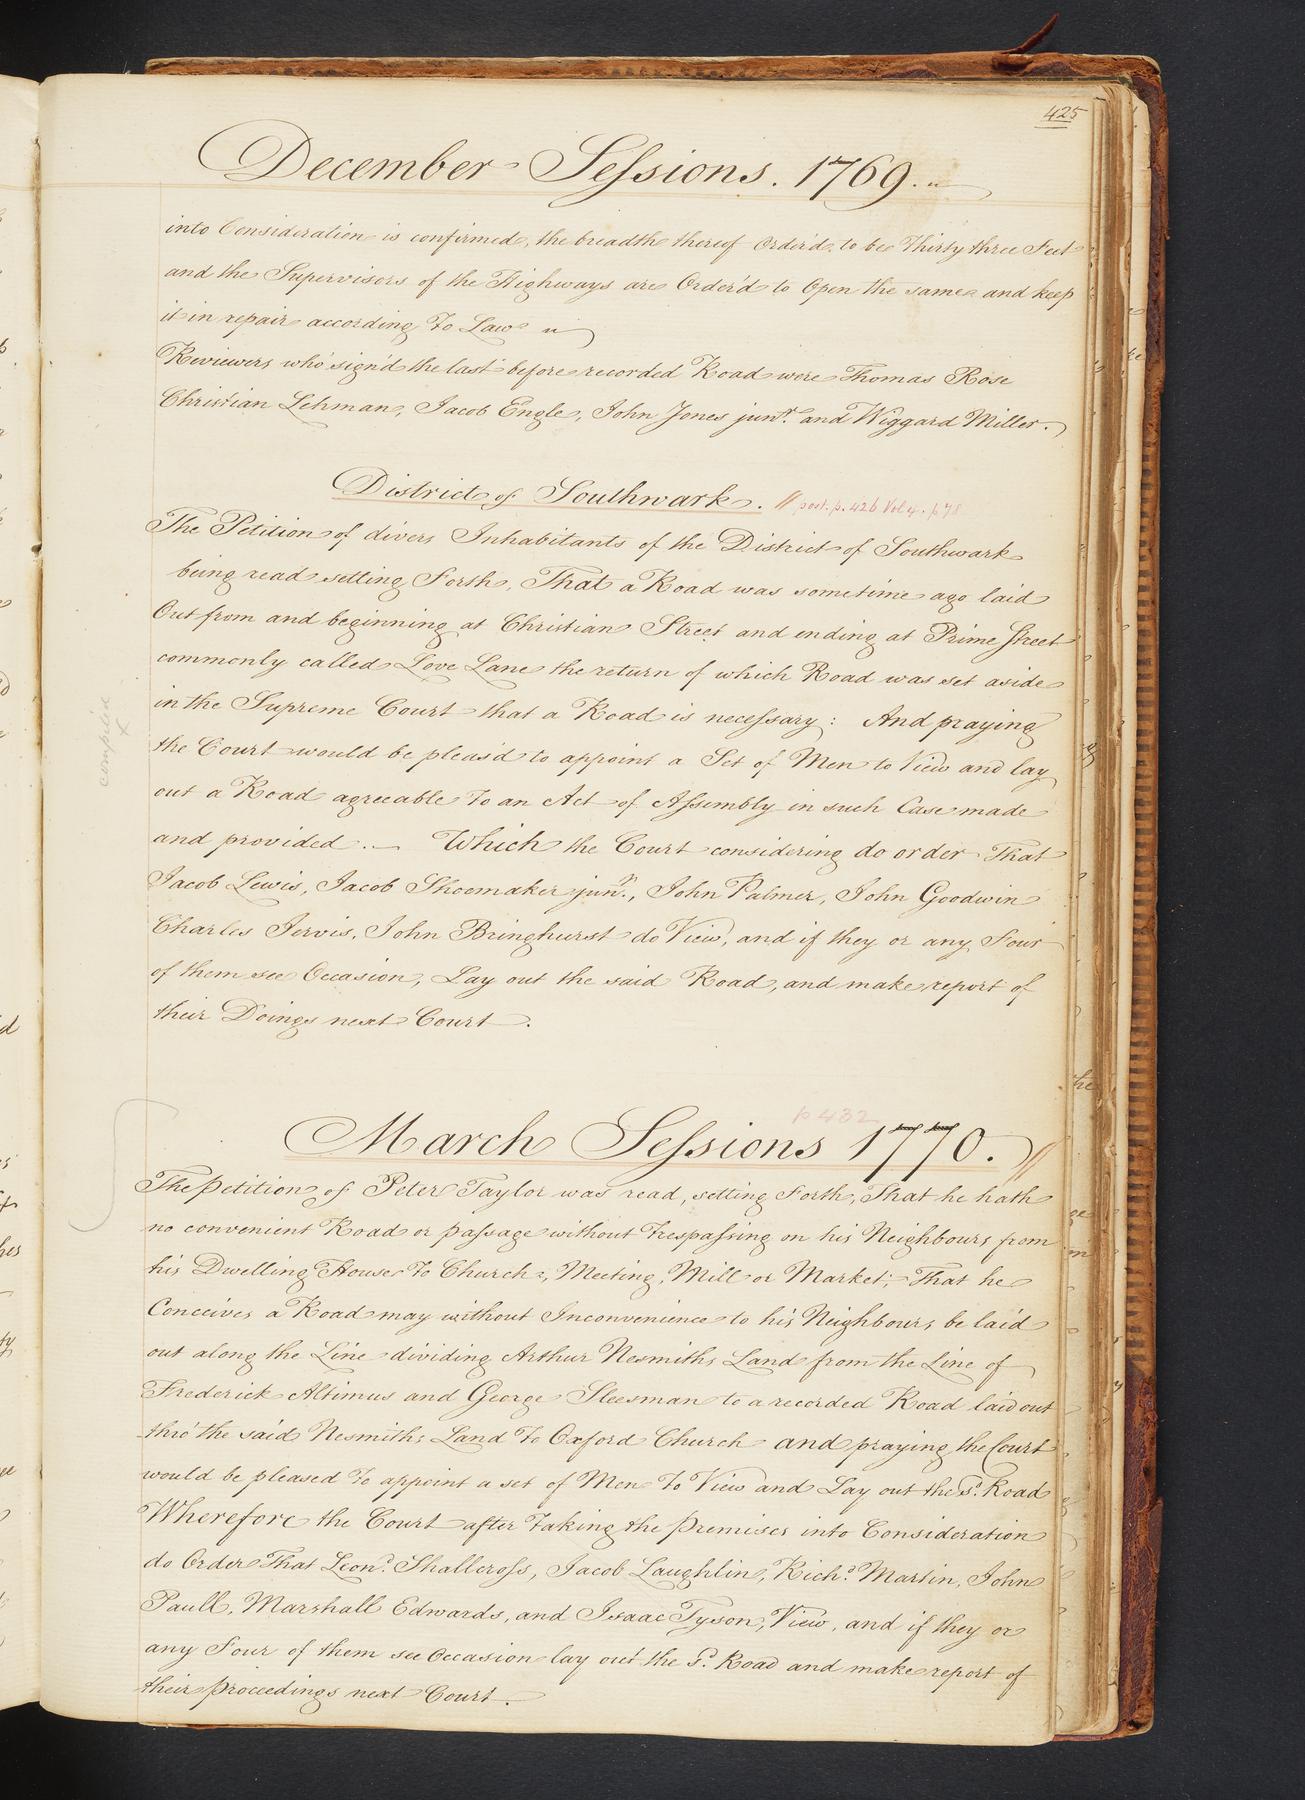 425
December Sessions. 1769.
into Consideration is confirmed, the breadth thereof Order'd to be Thirty three Feet
and the Supervisors of the Highways are Order'd to Open the same and keep
it in repair according To Law
Reviewers who sign'd the last before recorded Road were Thomas Rose
Christian Lehman, Jacob Engle, John Jones junr. and Wiggard Miller.
District of Southwark. // post. p. 426 Vol 4. p 78
The Petition of divers Inhabitants of the District of Southwark
being read setting Forth, That a Road was sometime ago laid
Out from and beginning at Christian Street and ending at Prime Street
commonly called Love Lane the return of which Road was set aside
in the Supreme Court that a Road is necessary: And praying
the Court would be pleas'd to appoint a Set of Men to View and lay
out a Road agreeable To an Act of Assembly in such Case made
and provided .. — Which the Court considering do order That
Jacob Lewis, Jacob Shoemaker junr., John Palmer, John Goodwin
Charles Jervis, John Bringhurst do View, and if they or any Four
of them see Occasion, Lay out the said Road, and make report of
their Doings next Court.
compiled
x
p 432
March Sessions 1770. //
The petition of Peter Taylor was read, setting Forth, That he hath
no convenient Road or passage without Trespassing on his Neighbours from
his Dwelling House To Church, Meeting, Mill or Market; That he
Conceives a Road may without Inconvenience to his Neighbours be laid
out along the Line dividing Arthur Nesmiths Land from the Line of
Frederick Altimus and George Sleesman to a recorded Road laid out
thro' the said Nesmiths Land To Oxford Church and praying the Court
would be pleased To appoint a set of Men To View and Lay out the sd. Road
Wherefore the Court after Taking the Premises into Consideration
do Order That Leond. Shallcross, Jacob Laughlin, Richd. Martin, John
Paull, Marshall Edwards, and Isaac Tyson, View, and if they or
any Four of them see Occasion lay out the sd. Road and make report of
their proceedings next Court.